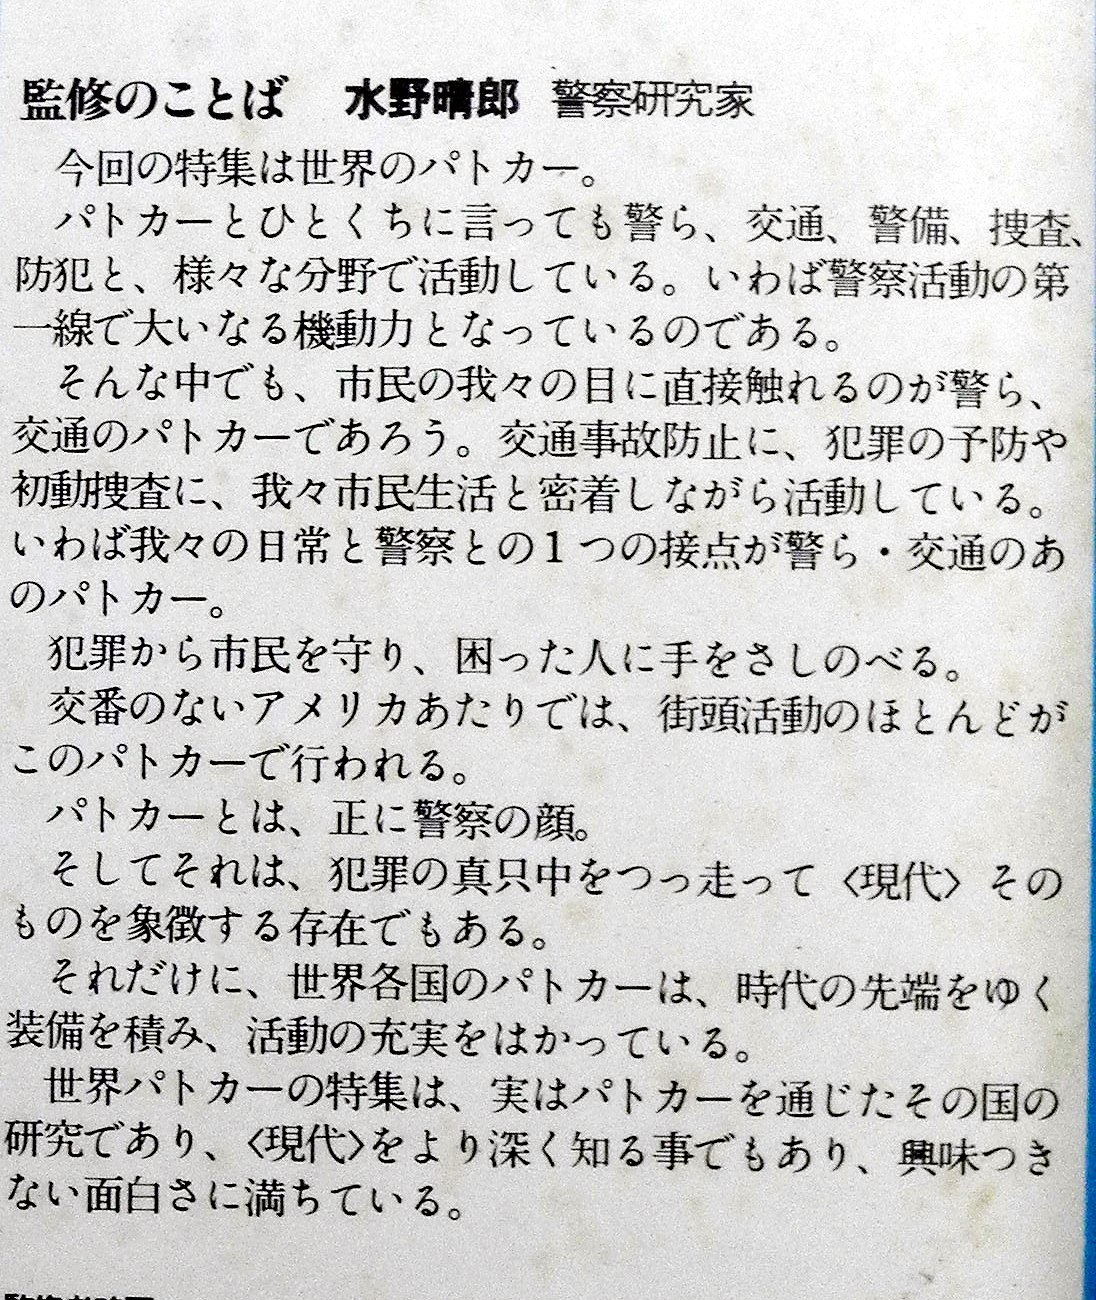 監修のことば 水野晴郎 警察研究家
今回の特集は世界のパトカー。
パトカーとひとくちに言っても警ら、交通、警備、捜査、
防犯と、様々な分野で活動している。いわば警察活動の第
一線で大いなる機動力となっているのである。
そんな中でも、市民の我々の目に直接触れるのが警ら、
交通のパトカーであろう。交通事故防止に、犯罪の予防や
初動捜査に、我々市民生活と密着しながら活動している。
いわば我々の日常と警察との1つの接点が警ら・交通のあ
のパトカー。
犯罪から市民を守り、困った人に手をさしのべる。
交番のないアメリカあたりでは、街頭活動のほとんどが
このパトカーで行われる。
パトカーとは、正に警察の顔。
そしてそれは、犯罪の真只中をつっ走って〈現代〉その
ものを象徴する存在でもある。
それだけに、世界各国のパトカーは、時代の先端をゆく
装備を積み、活動の充実をはかっている。
世界パトカーの特集は、実はパトカーを通じたその国の
研究であり、〈現代〉をより深く知る事でもあり、興味つき
ない面白さに満ちている。